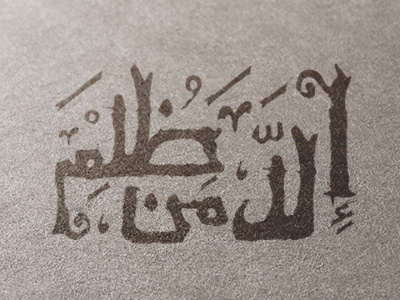 إِلَّا مَن ظُلِمَ